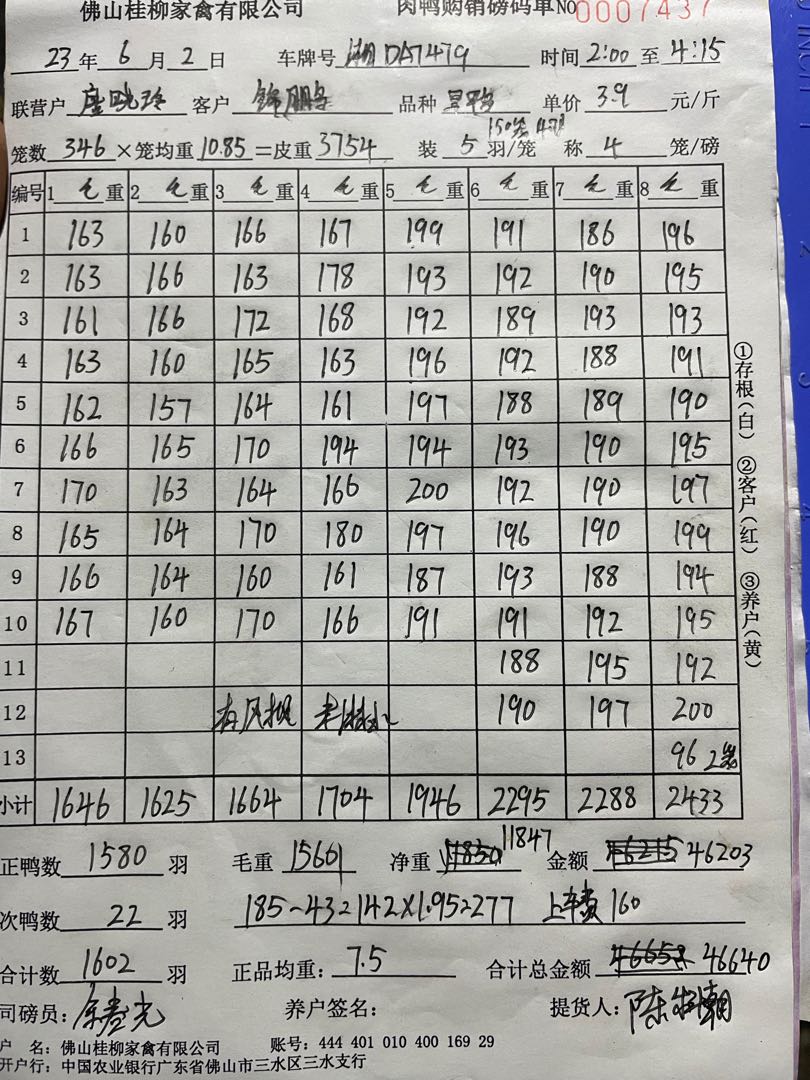 佛山桂柳家禽有限公司 肉鸭购销磅码单NO 0007437
23年 6月 2日 车牌号 湘DA7479 时间 2:00 至 4:15
联营户 客户 品种 单价 3.9 元/斤
笼数 346 ×笼均重 10.85 =皮重 3754 装 5 羽/笼 称 4 笼/磅
编号 1 毛重 2 毛重 3 毛重 4 毛重 5 毛重 6 毛重 7 毛重 8 毛重
1 163 160 166 167 199 191 186 196
2 163 166 163 178 193 192 190 195
3 161 166 172 168 192 189 193 193
4 163 160 165 163 196 192 188 191
5 162 157 164 161 197 188 189 190
6 166 165 170 194 194 193 190 195
7 170 163 164 166 200 192 190 197
8 165 164 170 180 197 196 190 199
9 166 164 160 161 187 193 188 194
10 167 160 170 166 191 191 192 195
11 188 195 192
12 190 197 200
13 96 2笼
小计 1646 1625 1664 1704 1946 2295 2288 2433
正鸭数 1580 羽 毛重 15601 净重 11850 11847 金额 46215 46203
次鸭数 22 羽 185-43=142×1.95=277 上车费 160
合计数 1602 羽 正品均重: 7.5 合计总金额 46658 46640
司磅员: 养户签名: 提货人:
户 名: 佛山桂柳家禽有限公司 账号: 444 401 010 400 169 29
开户行: 中国农业银行广东省佛山市三水区三水支行
①存根(白) ②客户(红) ③养户(黄)